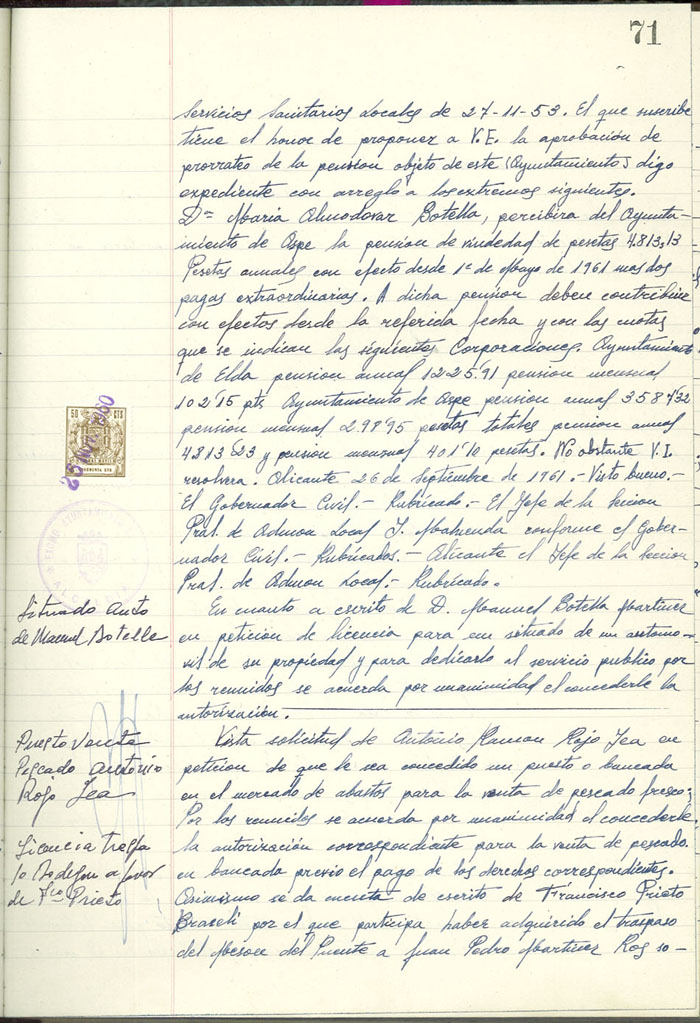 71
Servicios Sanitarios Locales de 27-11-53. El que suscribe
tiene el honor de proponer a V.E. la aprobación de
prorrateo de la pension objeto de este (Ayuntamiento) digo
expediente con arreglo a los extremos siguientes.
Dª Maria Almodovar Botella, percibira del Ayunta-
miento de Aspe la pension de viudedad de pesetas 4.813,13
Pesetas annales con efecto desde 1º de Mayo de 1961 mas dos
pagas extraordinarias. A dicha pension deben contribuir
con efectos desde la referida fecha y con las cuotas
que se indican las siguientes Corporaciones. Ayuntamiento
de Elda pension annal 1225'91 pension mensual
102'15 pts Ayuntamiento de Aspe pension annal 3587'32
pension mensual 298'95 pesetas totales pension annal
4813'23 y pension mensual 401'10 pesetas. No obstante V.I.
resolvera. Alicante 26 de Septiembre de 1961.- Visto bueno.-
El Gobernador Civil.- Rubricado.- El Jefe de la Seccion
Pral. de Admon Local J. conforme el Gober-
nador Civil.- Rubricados.- Alicante el Jefe de la Seccion
Pral. de Admon Local.- Rubricado.
En cuanto a escrito de D. Manuel Botella Martinez
en peticion de licencia para em situado de un automo-
vil de su propiedad y para dedicarlo al servicio publico por
los reunidos se acuerda por unanimidad el concederle la
autorización.
Vista solicitud de Antonio Ramon Rojo Jea en
peticion de que le sea concedido un puesto o bancada
en el mercado de abastos para la venta de pescado fresco;
Por los reunidos se acuerda por unanimidad el concederle
la autorización correspondiente para la venta de pescado
en bancada previo el pago de los derechos correspondientes.
Asimismo se da cuenta de escrito de Francisco Prieto
por el que participa haber adquirido el traspaso
del Meson del Puente a Juan Pedro Martinez Ros so-
50 CTS
25 NOV. 1960
ALCALDIA
Situado Auto
de Manuel Botella
Puesto venta
Pescado Antonio
Rojo Jea
Licencia traspa
so Bodegon a favor
de Fco Prieto